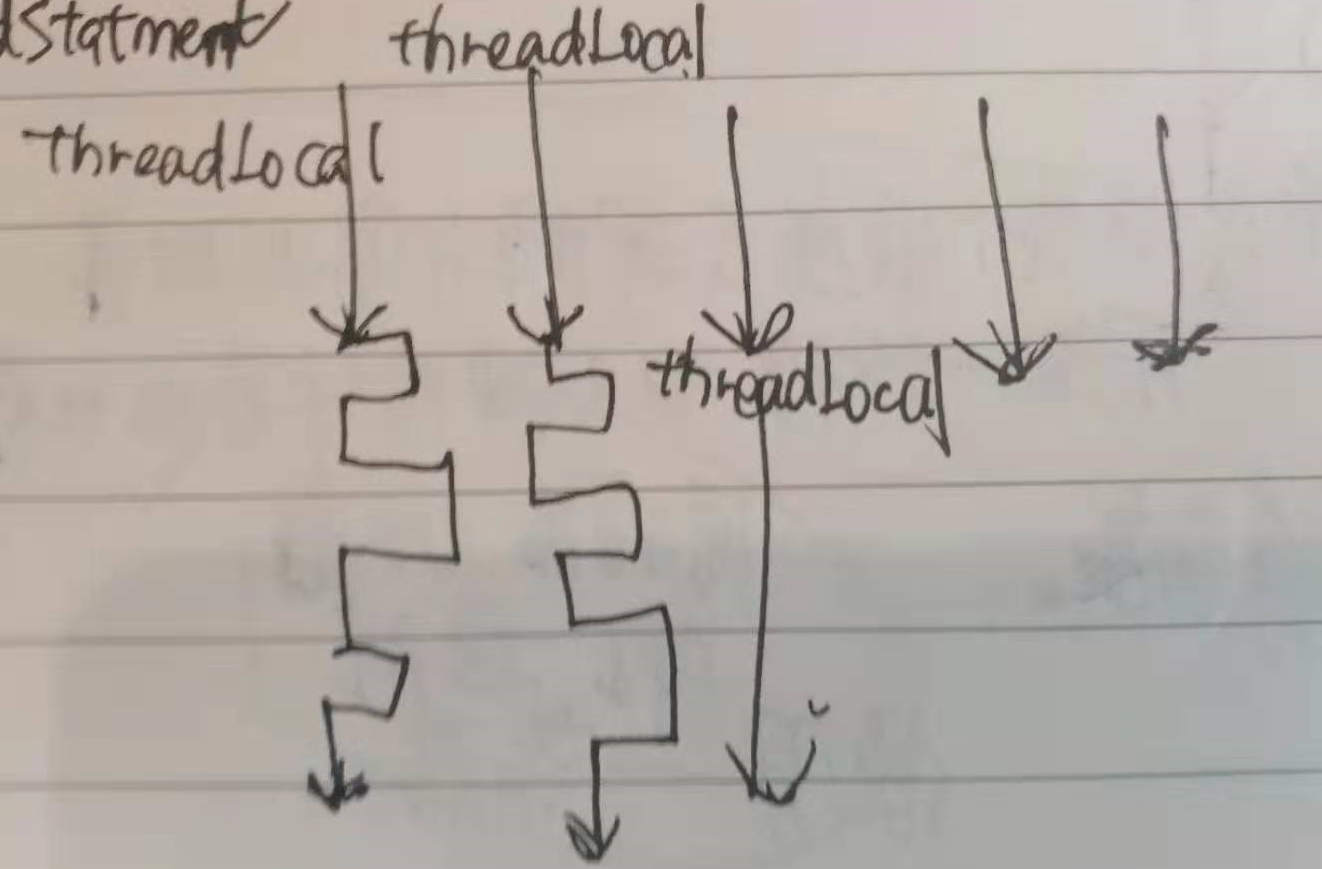 dStatment threadLocal
threadLocal
threadLocal